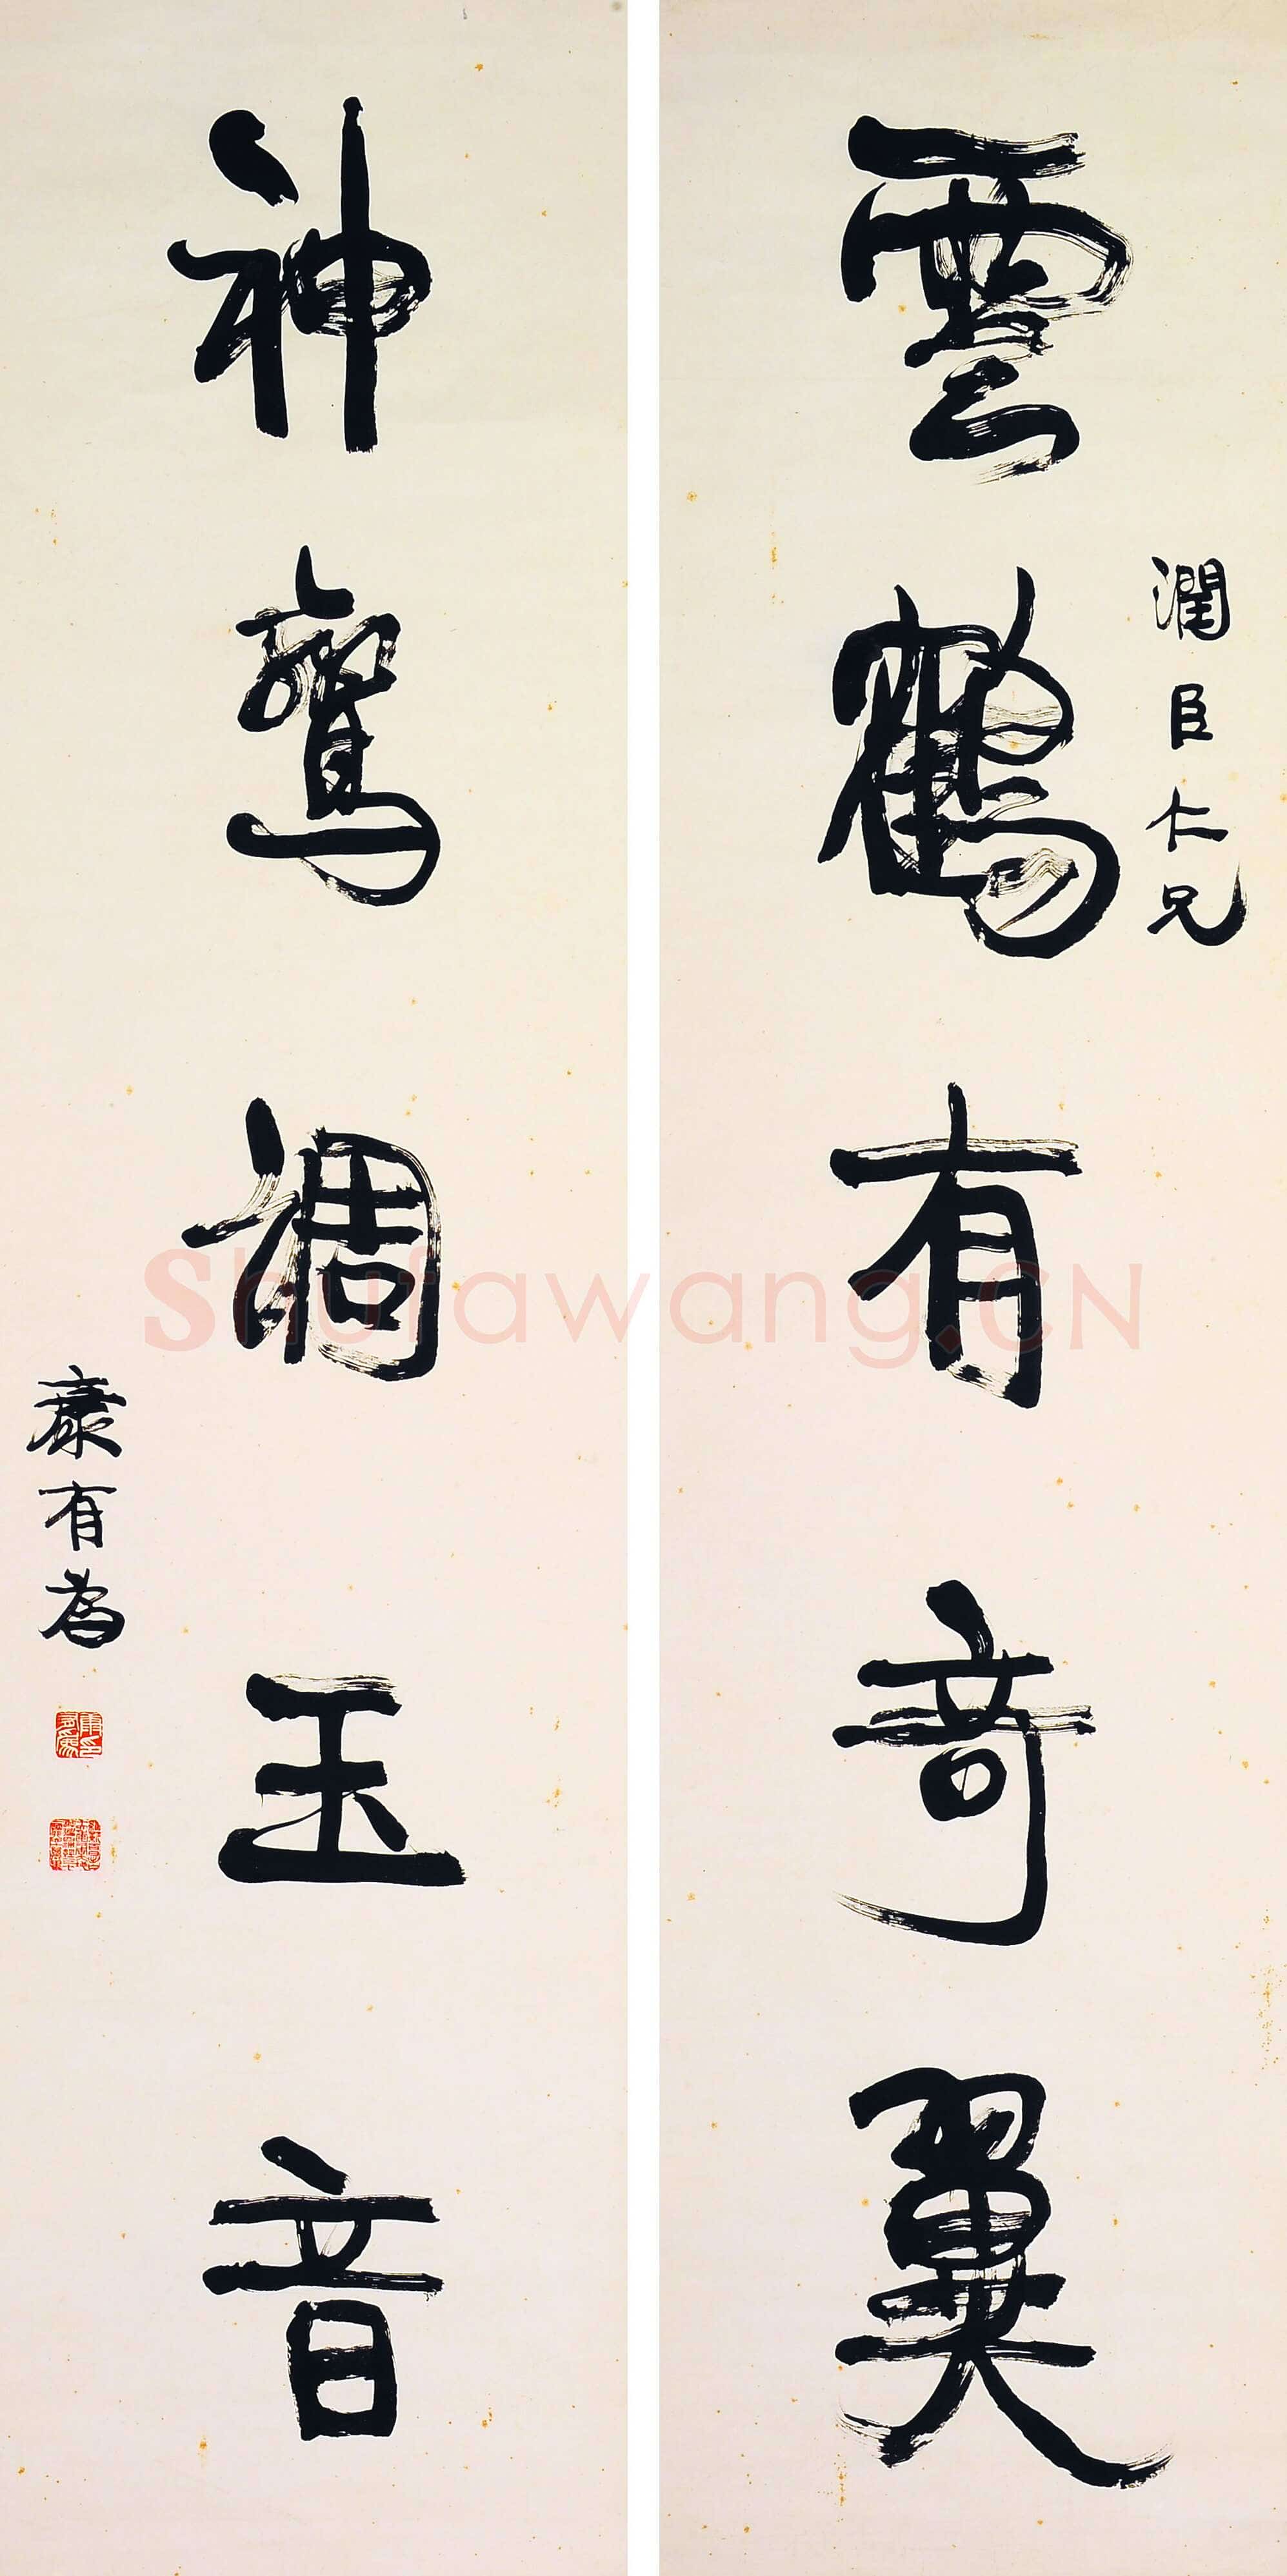 雲鶴有奇翼
潤臣仁兄
神鸞調玉音
康有為
Shufawang.CN